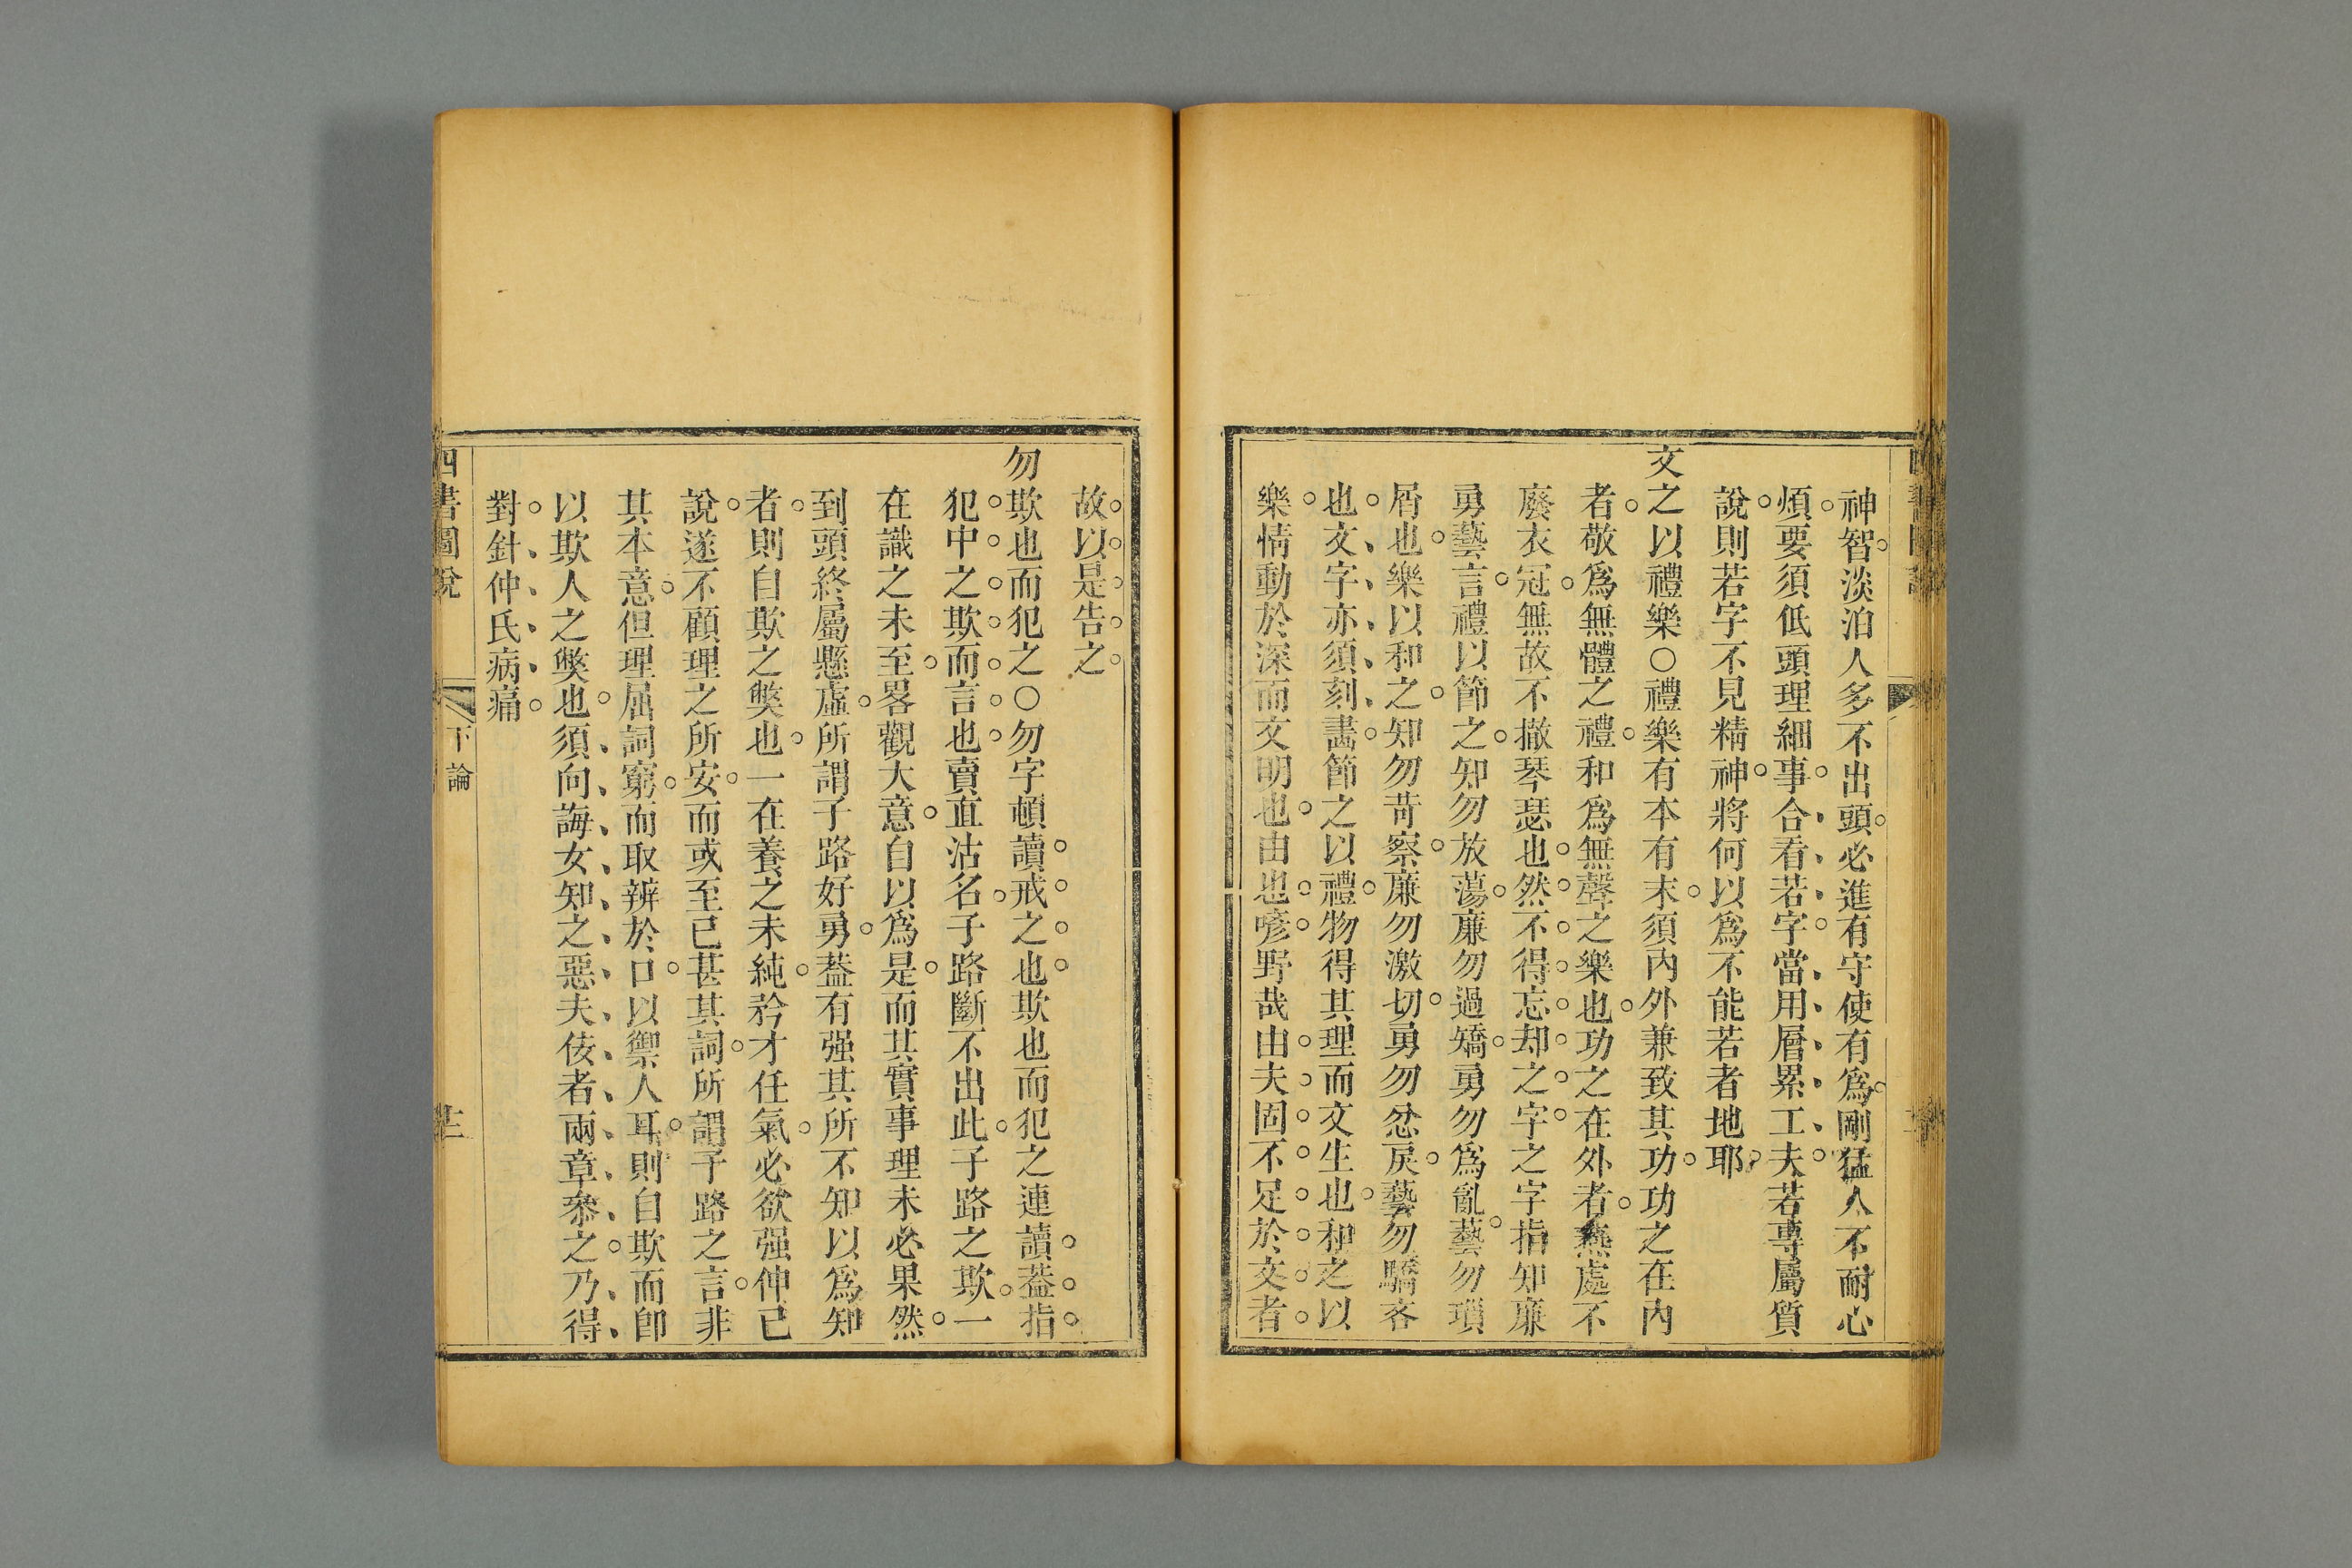 神智淡泊人多不出頭必進有守使有爲剛猛人不耐心
煩要須低頭理細事合看若字當用層累工夫若專屬質
說則若字不見精神將何以爲不能若者地耶
文之以禮樂○禮樂有本有末須內外兼致其功功之在內
者敬爲無體之禮和爲無聲之樂也功之在外者燕處不
廢衣冠無故不撤琴瑟也然不得忘却之字之字指知廉
勇藝言禮以節之知勿放蕩廉勿過矯勇勿爲亂藝勿瑣
屑也樂以和之知勿苛察廉勿激切勇勿忿戾藝勿驕吝
也文字亦須刻畵節之以禮物得其理而文生也和之以
樂情動於深而文明也由也喭野哉由夫固不足於文者
故以是告之
勿欺也而犯之○勿字頓讀戒之也欺也而犯之連讀葢指
犯中之欺而言也賣直沽名子路斷不出此子路之欺一
在識之未至畧觀大意自以爲是而其實事理未必果然
到頭終屬懸虛所謂子路好勇葢有强其所不知以爲知
者則自欺之獘也一在養之未純矜才任氣必欲强伸已
說遂不顧理之所安而或至已甚其詞所謂子路之言非
其本意但理屈詞窮而取辨於口以禦人耳則自欺而卽
以欺人之獘也須向誨女知之惡夫佞者兩章叅之乃得
對針仲氏病痛
四書圖說
下論
廿二